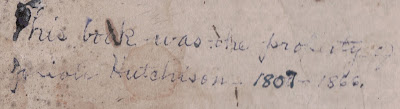 This book was the property of
Hutchison - 1807 - 1866.